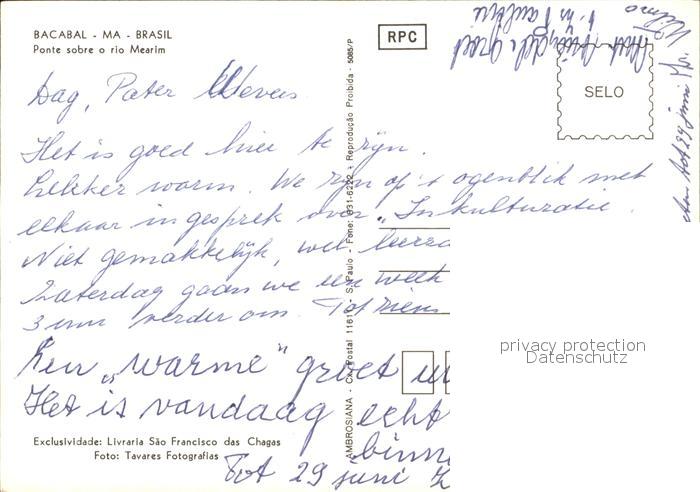 BACABAL - MA - BRASIL
Ponte sobre o rio Mearim
RPC
SELO
Dag, Pater
Het is goed hier te zijn.
Lekker warm. We zijn op 't ogenblik met
elkaar in gesprek over „Inkulturatie.
Niet gemakkelijk, wel
Zaterdag gaan we een week
3 uur verder om. Tot ziens
Een „warme" groet
Het is vandaag echt
binn
Tot 29 juni
Exclusividade: Livraria São Francisco das Chagas
Foto: Tavares Fotografias
AMBROSIANA - Cx. Postal 1161 - S. Paulo - Fone: 931-6222 - Reprodução Proibida - 5085/P
tot 29 juni
privacy protection
Datenschutz